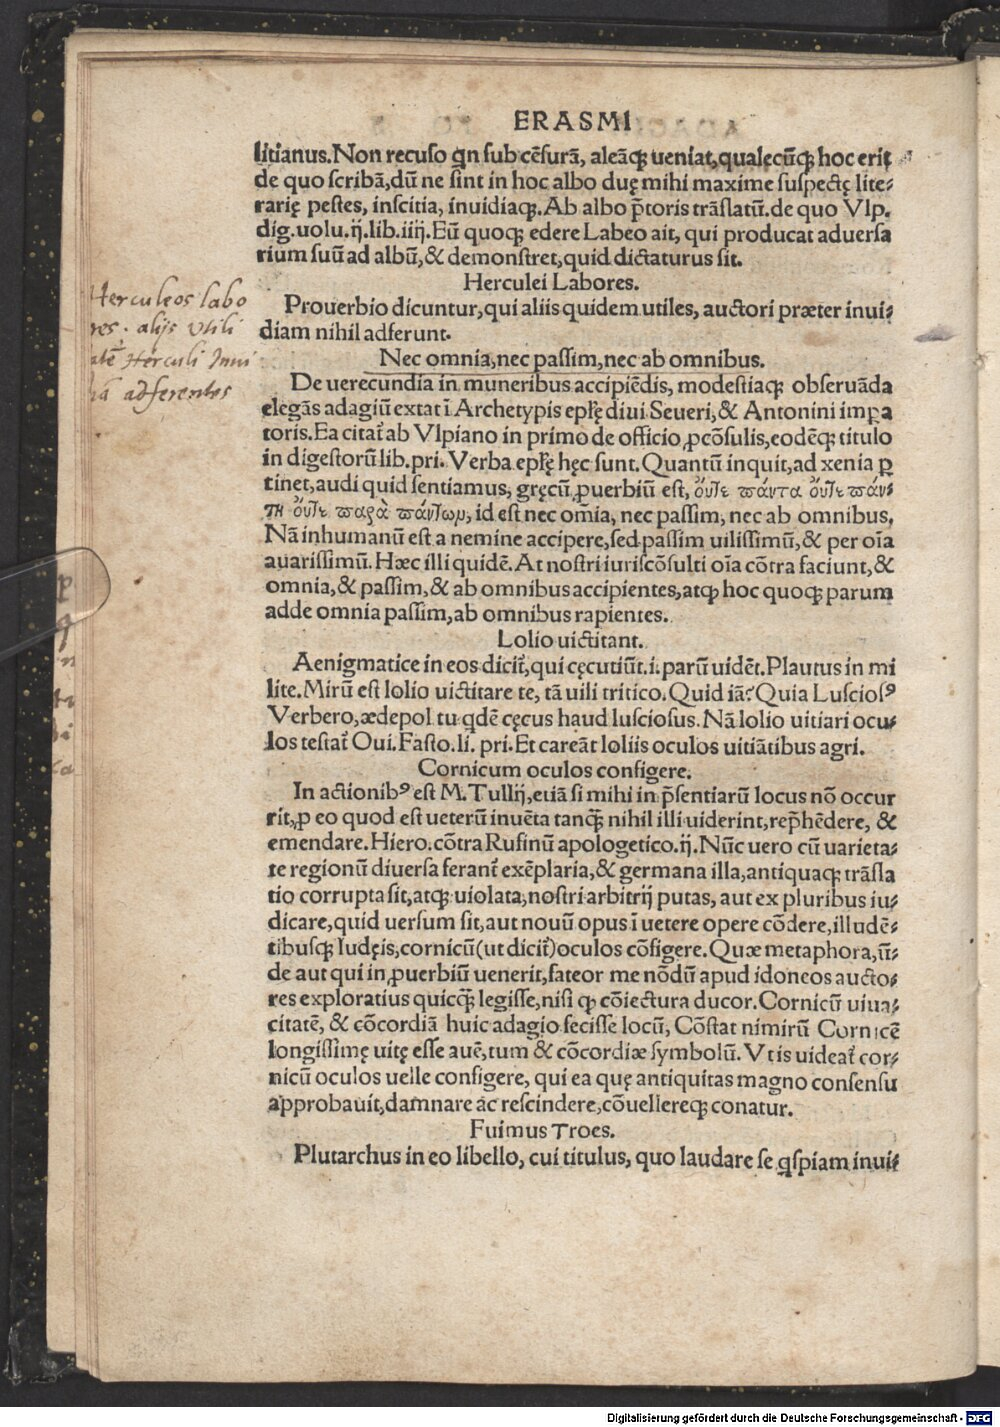 ERASMI
litianus. Non recuso qn sub cēsurā, aleāqꝫ ueniat, qualecūqꝫ hoc erit
de quo scribā, dū ne sint in hoc albo duę mihi maxime suspectę lite⸗
rarię pestes, inscitia, inuidiaqꝫ. Ab albo p̄toris trāslatū. de quo Vlp.
dig. uolu. ij. lib. iiij. Eū quoqꝫ edere Labeo ait, qui producat aduersa
rium suū ad albū, & demonstret, quid dictaturus sit.
Herculei Labores.
Prouerbio dicuntur, qui aliis quidem utiles, auctori præter inui⸗
diam nihil adferunt.
Herculeos labo
res. alijs vtili
atē Herculi Inui
iā adferentes
Nec omnia, nec passim, nec ab omnibus.
De uerecundia in muneribus accipiēdis, modestiaqꝫ obseruāda
elegās adagiū extat ī Archetypis epłę diui Seueri, & Antonini impa
toris. Ea citat᷑ ab Vlpiano in primo de officio ꝓcōsulis, eodēqꝫ titulo
in digestorū lib. pri. Verba epłę hęc sunt. Quantū inquit, ad xenia ꝑ
tinet, audi quid sentiamus, gręcū ꝓuerbiū est, ὄυτε πάντα ὄυτε πάν⸗
τη ὄυτε παρὰ πάντωμ, id est nec om̄ia, nec passim, nec ab omnibus.
Nā inhumanū est a nemine accipere, sed passim uilissimū, & per oīa
auarissimū. Hæc illi quidē. At nostri iuriscōsulti oīa cōtra faciunt, &
omnia, & passim, & ab omnibus accipientes, atqꝫ hoc quoqꝫ parum
adde omnia passim, ab omnibus rapientes.
Lolio uictitant.
Aenigmatice in eos dicit᷑, qui cęcutiūt. i. parū uidēt. Plautus in mi
lite. Mirū est lolio uictitare te, tā uili tritico. Quid iā? Quia Lusciosꝰ
Verbero, ædepol tu qdē cęcus haud lusciosus. Nā lolio uitiari ocu⸗
los testat᷑ Oui. Fasto. li. pri. Et careāt loliis oculos uitiātibus agri.
Cornicum oculos configere.
In actionibꝰ est M. Tullij, etiā si mihi in p̄sentiarū locus nō occur
rit, ꝓ eo quod est ueterū inuēta tanqꝫ̄ nihil illi uiderint, rep̄hēdere, &
emendare. Hiero. cōtra Rufinū apologetico. ij. Nūc uero cū uarieta⸗
te regionū diuersa ferant᷑ exēplaria, & germana illa, antiquaqꝫ trāsla
tio corrupta sit, atqꝫ uiolata, nostri arbitrij putas, aut ex pluribus iu⸗
dicare, quid uersum sit, aut nouū opus ī uetere opere cōdere, illudē⸗
tibusqꝫ Iudęis, cornicū (ut dicit᷑) oculos cōfigere. Quæ metaphora, ū⸗
de aut qui in ꝓuerbiū uenerit, fateor me nōdū apud idoneos aucto⸗
res exploratius quicqꝫ̄ legisse, nisi qꝫ cōiectura ducor. Cornicū uiua⸗
citatē, & cōcordiā huic adagio fecisse locū, Cōstat nimirū Cornicē
longissimę uitę esse auē, tum & cōcordiæ symbolū. Vt is uideat᷑ cor⸗
nicū oculos uelle configere, qui ea quę antiquitas magno consensu
approbauit, damnare ac rescindere, cōuellereqꝫ conatur.
Fuimus Troes.
Plutarchus in eo libello, cui titulus, quo laudare se qspiam inui⸗
Digitalisierung gefördert durch die Deutsche Forschungsgemeinschaft - DFG